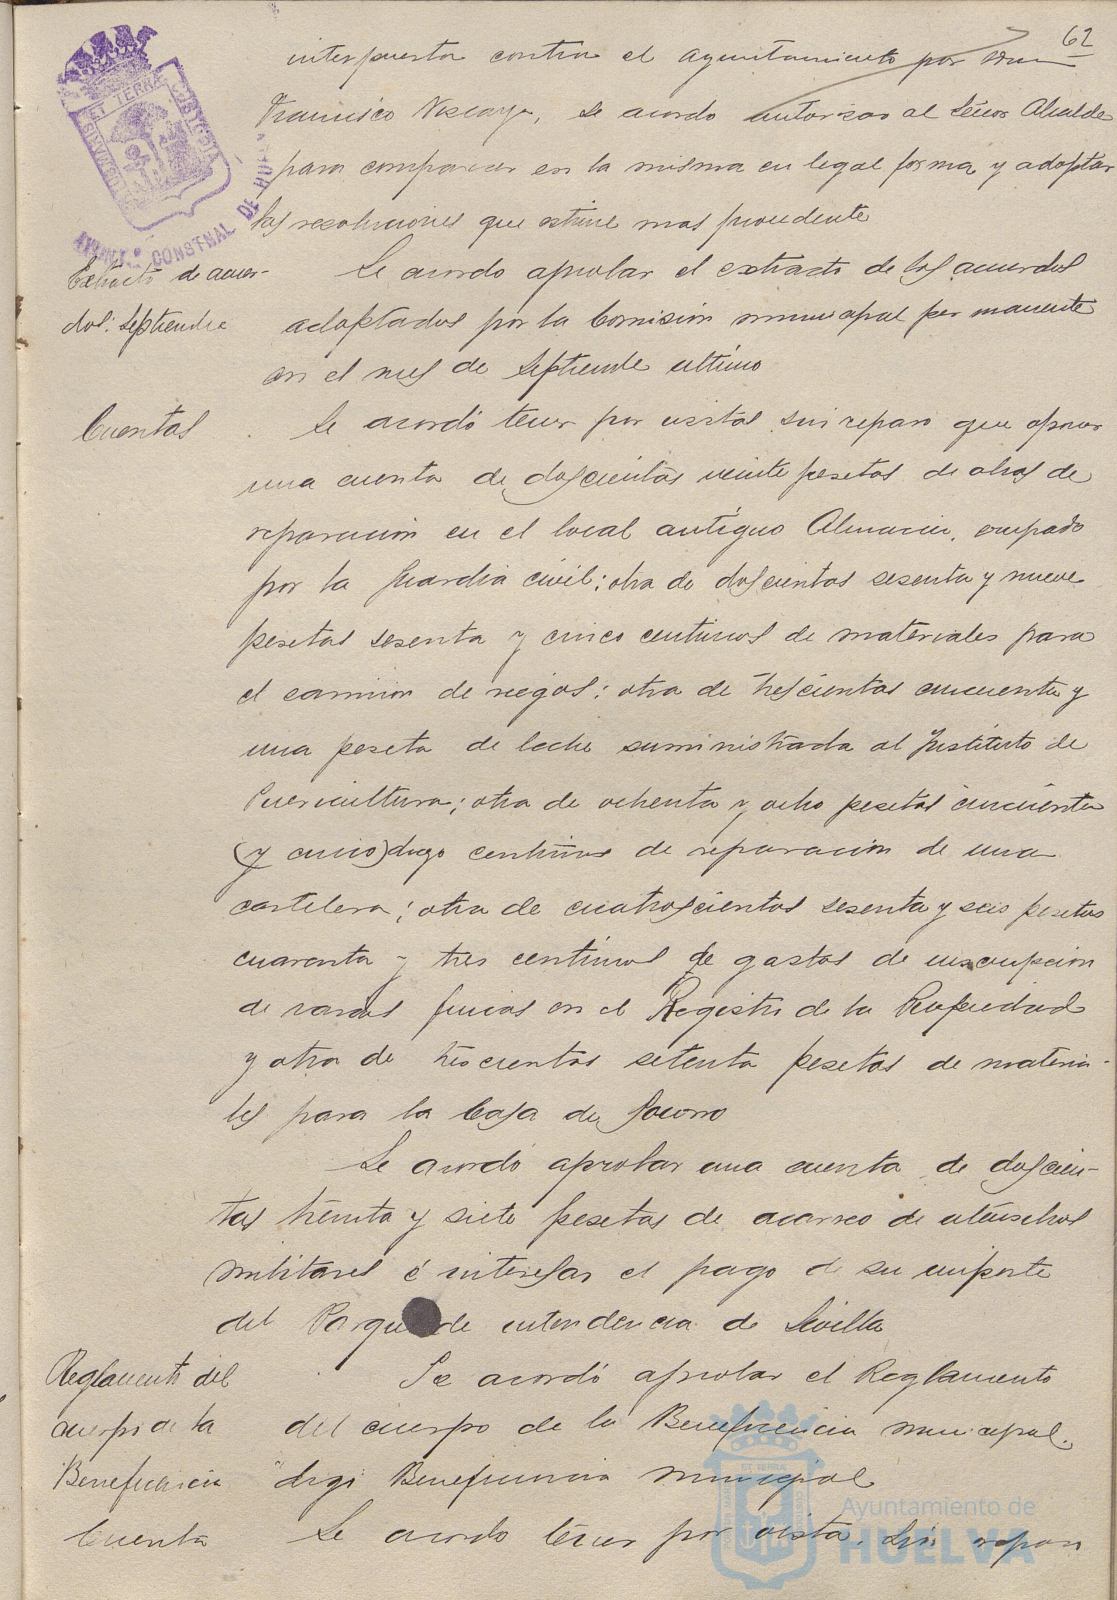 62
interpuesta contra el Ayuntamiento por Don
Francisco Vizcaya, se acordo autorizar al Señor Alcalde
para comparecer en la misma en legal forma y adoptar
las resoluciones que estime mas procedente
Extracto de acuer-
dos: Septiembre
Se acordo aprobar el extracto de los acuerdos
adoptados por la Comision municipal permanente
en el mes de Septiembre ultimo
Cuentas
Se acordó tener por vistas sin reparo que oponer
una cuenta de doscientas veinte pesetas de obras de
reparación en el local antiguo Almacen, ocupado
por la Guardia civil; otra de doscientas sesenta y nueve
pesetas sesenta y cinco centimos de materiales para
el camion de riegos; otra de trescientas cincuenta y
una peseta de leche suministrada al Instituto de
Puericultura; otra de ochenta y ocho pesetas cincuenta
(y cinco) digo centimos de reparación de una
cartelera; otra de cuatrocientas sesenta y seis pesetas
cuarenta y tres centimos de gastos de inscripcion
de varias fincas en el Registro de la Propiedad
y otra de trescientas setenta pesetas de materia-
les para la Casa de Socorro
Se acordó aprobar una cuenta de doscien-
tas treinta y siete pesetas de acarreo de utensilios
militares é interesar el pago de su importe
del Parque de intendencia de Sevilla
Reglamento del
cuerpo de la
Beneficencia
Se acordó aprobar el Reglamento
del cuerpo de la Beneficencia municipal.
digo Beneficencia municipal
Cuenta
Se acordo tener por vista, sin reparo
AYUNT.º CONSTNAL DE HUELVA
ET TERRA
Ayuntamiento de
HUELVA